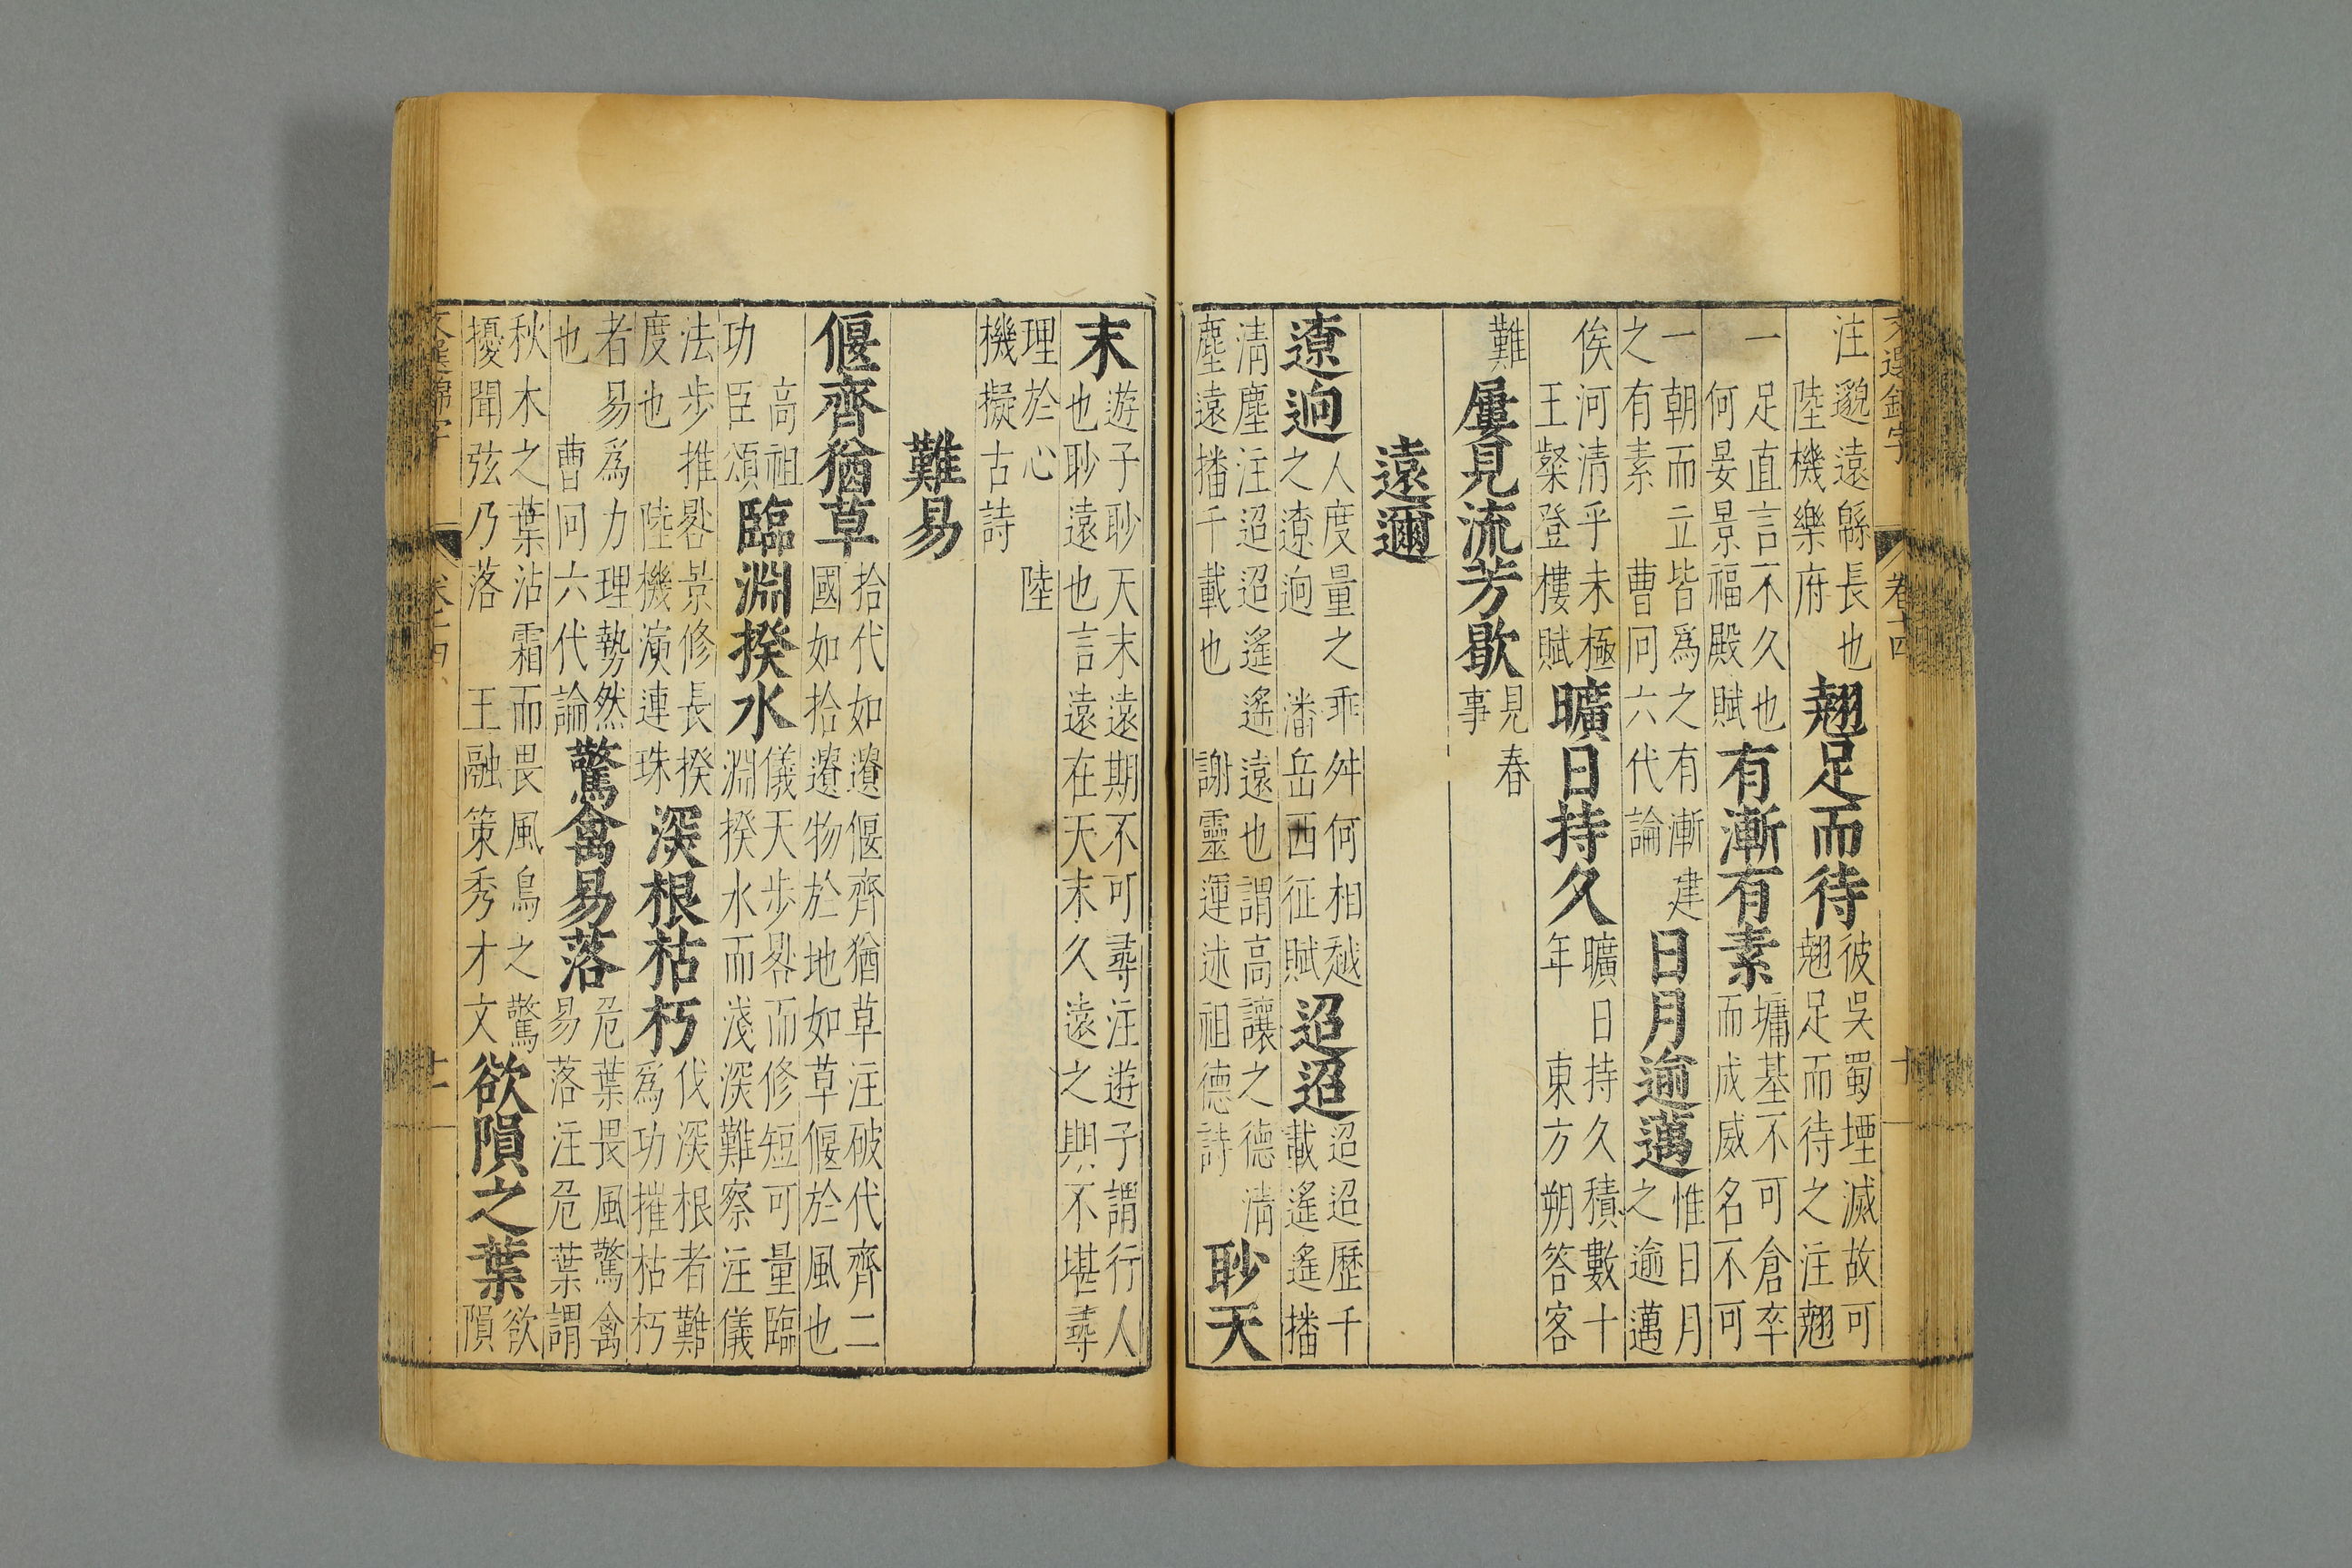 文選錦字 卷十四 十
注邈遠緜長也
陸機樂府
翹足而待
彼吳蜀堙滅故可
翹足而待之注翹
一足直言不久也
何晏景福殿賦
有漸有素
墉基不可倉卒
而成威名不可
一朝而立皆爲之有漸建
之有素 曹冏六代論
日月逾邁
惟日月
之逾邁
俟河清乎未極
王粲登樓賦
曠日持久
曠日持久積數十
年 東方朔答客
難
屢見流芳歇
見春
事
遠邇
遼迥
人度量之乖舛何相越
之遼迥 潘岳西征賦
迢迢
迢迢歷千
載遙遙播
清塵注迢迢遙遙遠也謂高讓之德清
塵遠播千載也 謝靈運述祖德詩
眇天
末
遊子眇天末遠期不可尋注遊子謂行人
也眇遠也言遠在天末久遠之與不堪尋
理於心 陸
機擬古詩
難易
偃齊猶草
拾代如遺偃齊猶草注破代齊二
國如拾遺物於地如草偃於風也
高祖
功臣頌
臨淵揆水
儀天步晷而修短可量臨
淵揆水而淺深難察注儀
法步推晷景修長揆
度也 陸機演連珠
深根枯朽
伐深根者難
爲功摧枯朽
者易爲力理勢然
也 曹冏六代論
驚禽易落
危葉畏風驚禽
易落注危葉謂
秋木之葉沾霜而畏風鳥之驚
擾聞弦乃落 王融策秀才文
欲隕之葉
欲
隕
文選錦字 卷十四 十一